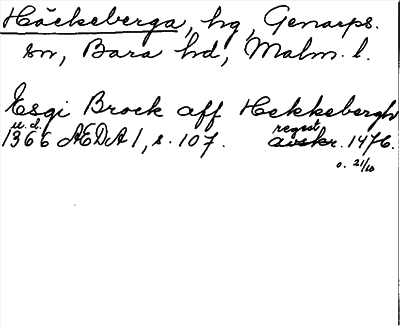 Häckeberga, hg, Genarps.
sn, Bara hd, Malm. l.
Esgi Brock aff Hekkebergh
u.d.
1366 ÆDA 1, s. 107. regest avskr. 1476.
o. 21/10